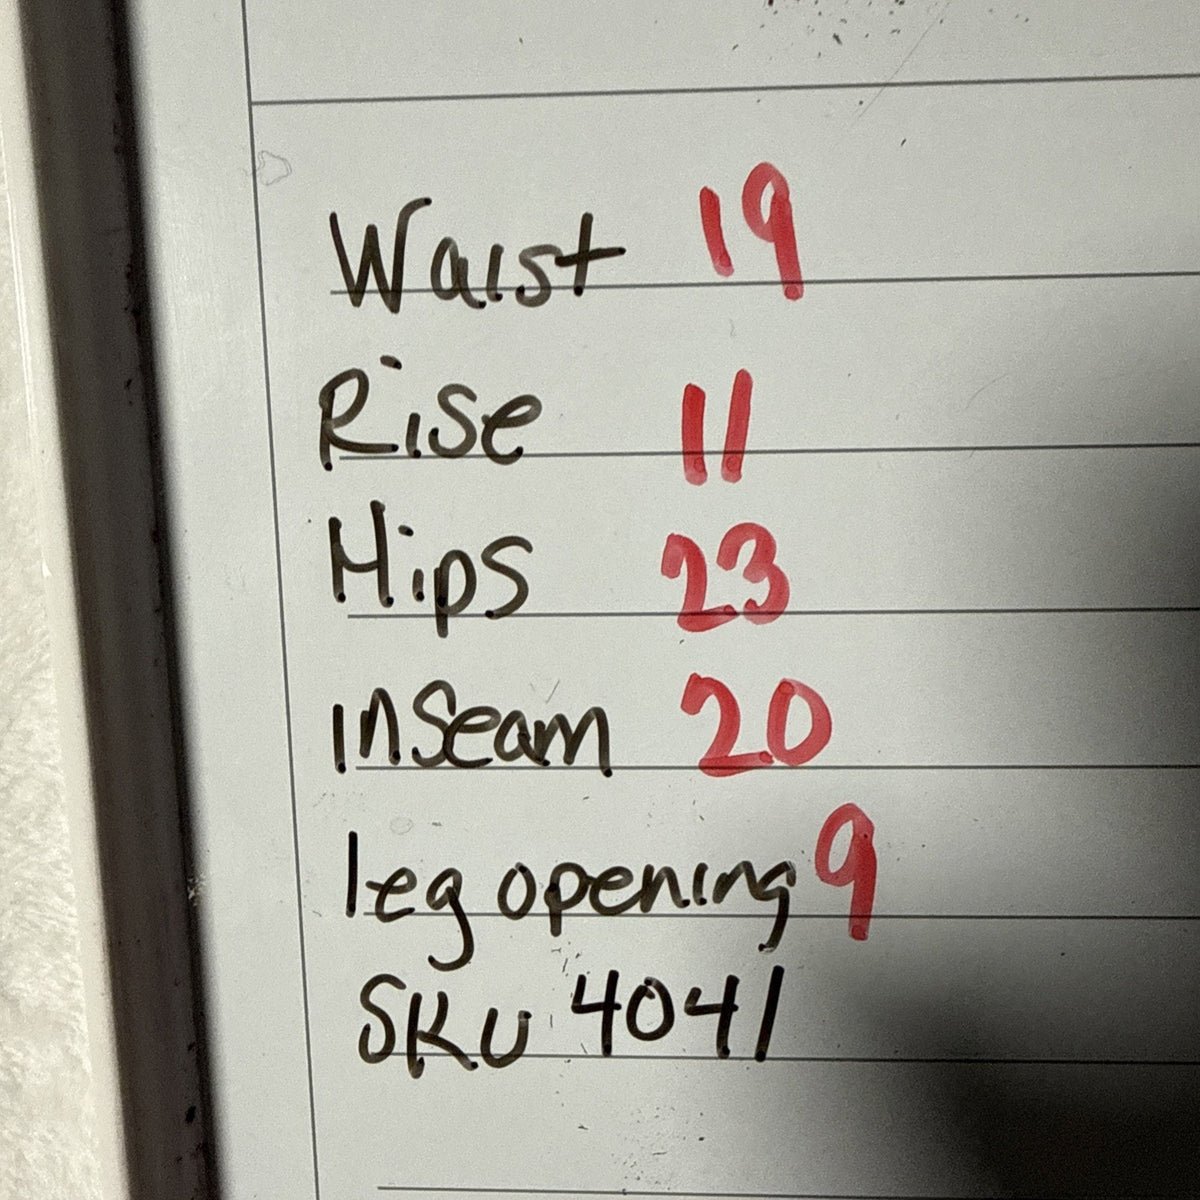 Waist 19
Rise 11
Hips 23
inseam 20
leg opening 9
SKU 4041